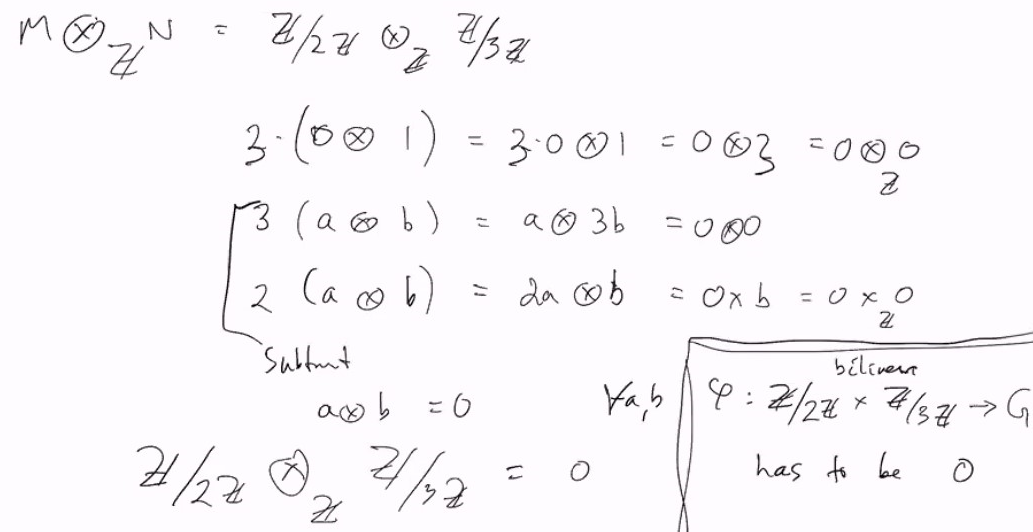 M ⊗_ℤ N = ℤ/2ℤ ⊗_ℤ ℤ/3ℤ
3·(0 ⊗ 1) = 3·0 ⊗ 1 = 0 ⊗ 3 = 0 ⊗_ℤ 0
3 (a ⊗ b) = a ⊗ 3b = 0 ⊗ 0
2 (a ⊗ b) = 2a ⊗ b = 0 × b = 0 ×_ℤ 0
Subtract
a ⊗ b = 0 ∀a,b
ℤ/2ℤ ⊗_ℤ ℤ/3ℤ = 0
bilinear
φ : ℤ/2ℤ × ℤ/3ℤ → G
has to be 0